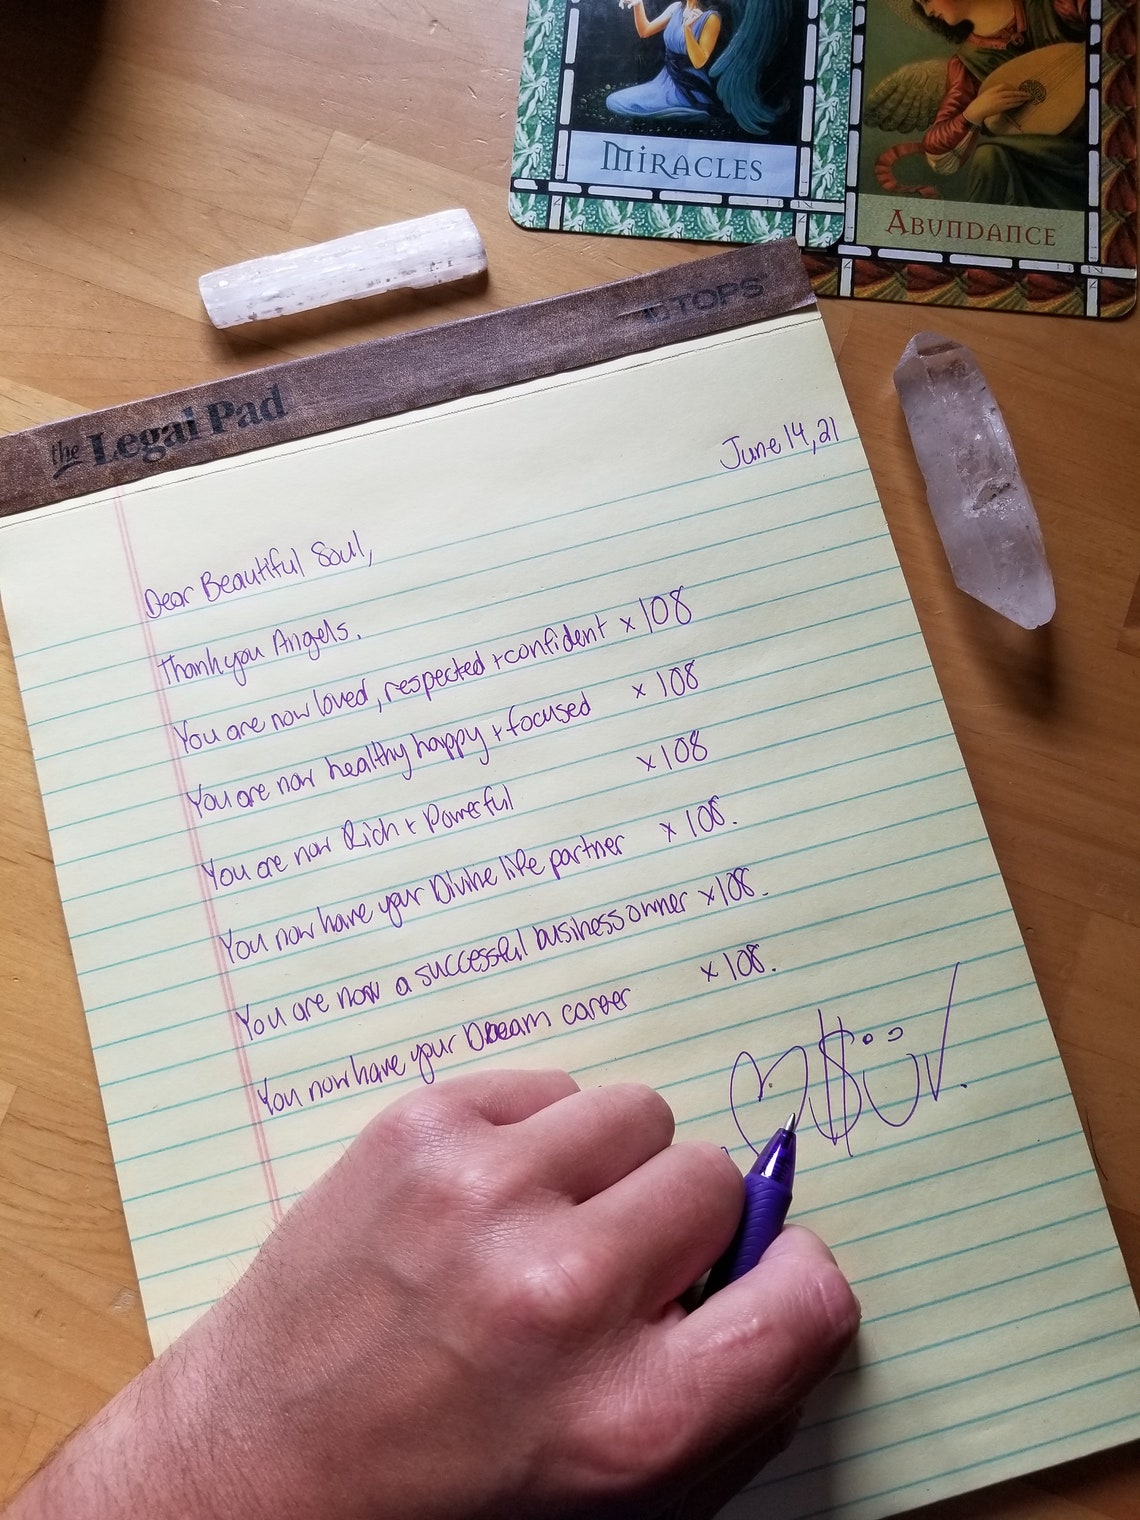 Miracles
Abundance
the Legal Pad
TOPS
June 14, 21
Dear Beautiful Soul,
Thank you Angels.
You are now loved, respected + confident x 108
You are now healthy happy + focused x 108
You are now Rich + Powerful x 108
You now have your Divine life partner x 108.
You are now a successful business owner x 108.
You now have your Dream career x 108.